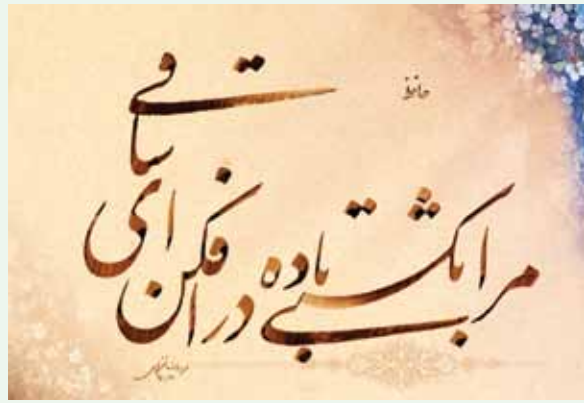 حافظ
مرا به کشتی باده درافکن ای ساقی